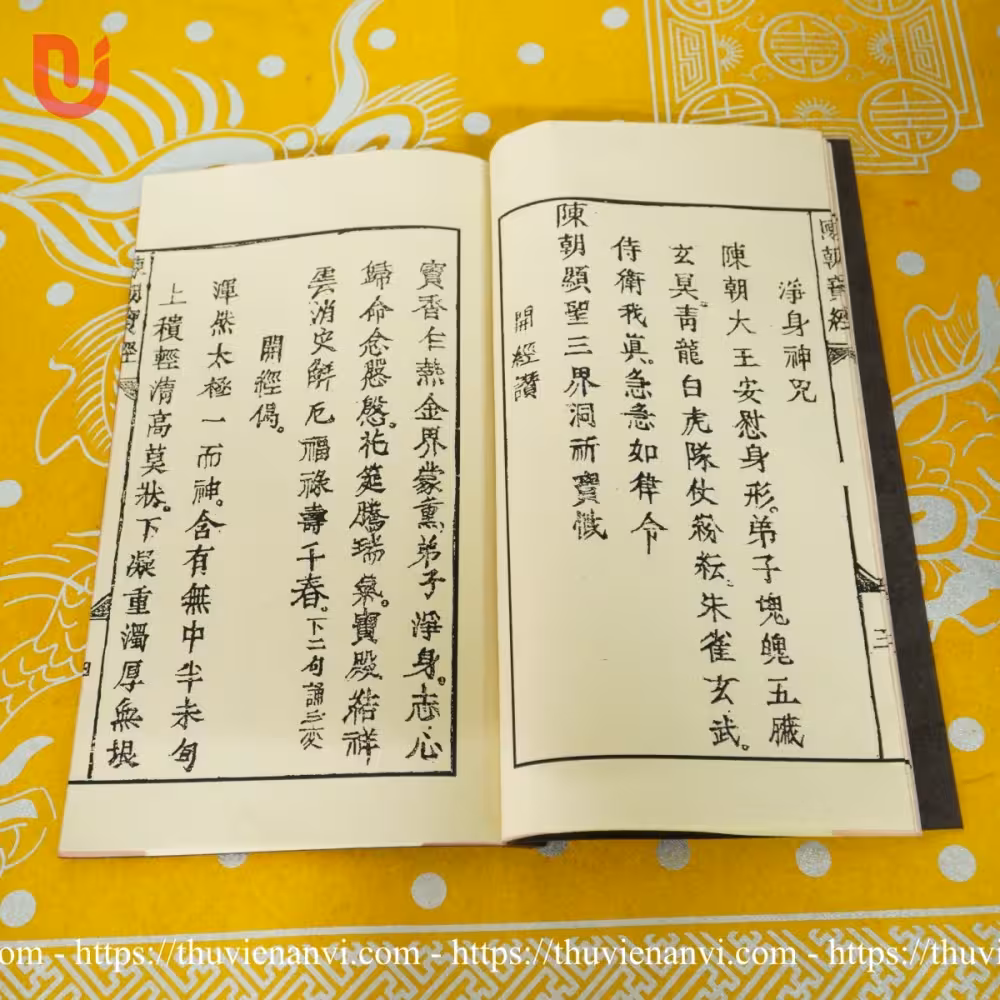 陳朝寶經
三
淨身神咒
陳朝大王安慰身形。弟子塊魄五臟
玄冥。青龍白虎隊仗紛紜。朱雀玄武。
侍衛我眞。急急如律令
陳朝顯聖三界洞祈寶懺
開經讚
寶香乍熱金界蒙熏弟子淨身。志心
歸命念慇慇。花筵騰瑞氣。寶殿結祥
雲消灾觧厄福祿壽千春。下二句誦三变
開經偈。
渾然太極一而神。含有無中半未旬
上積輕清高莫狀。下凝重濁厚無垠
陳朝寶經
四
om - https://thuvienanvi.com - https://thuvienanvi.com - https://thuvi